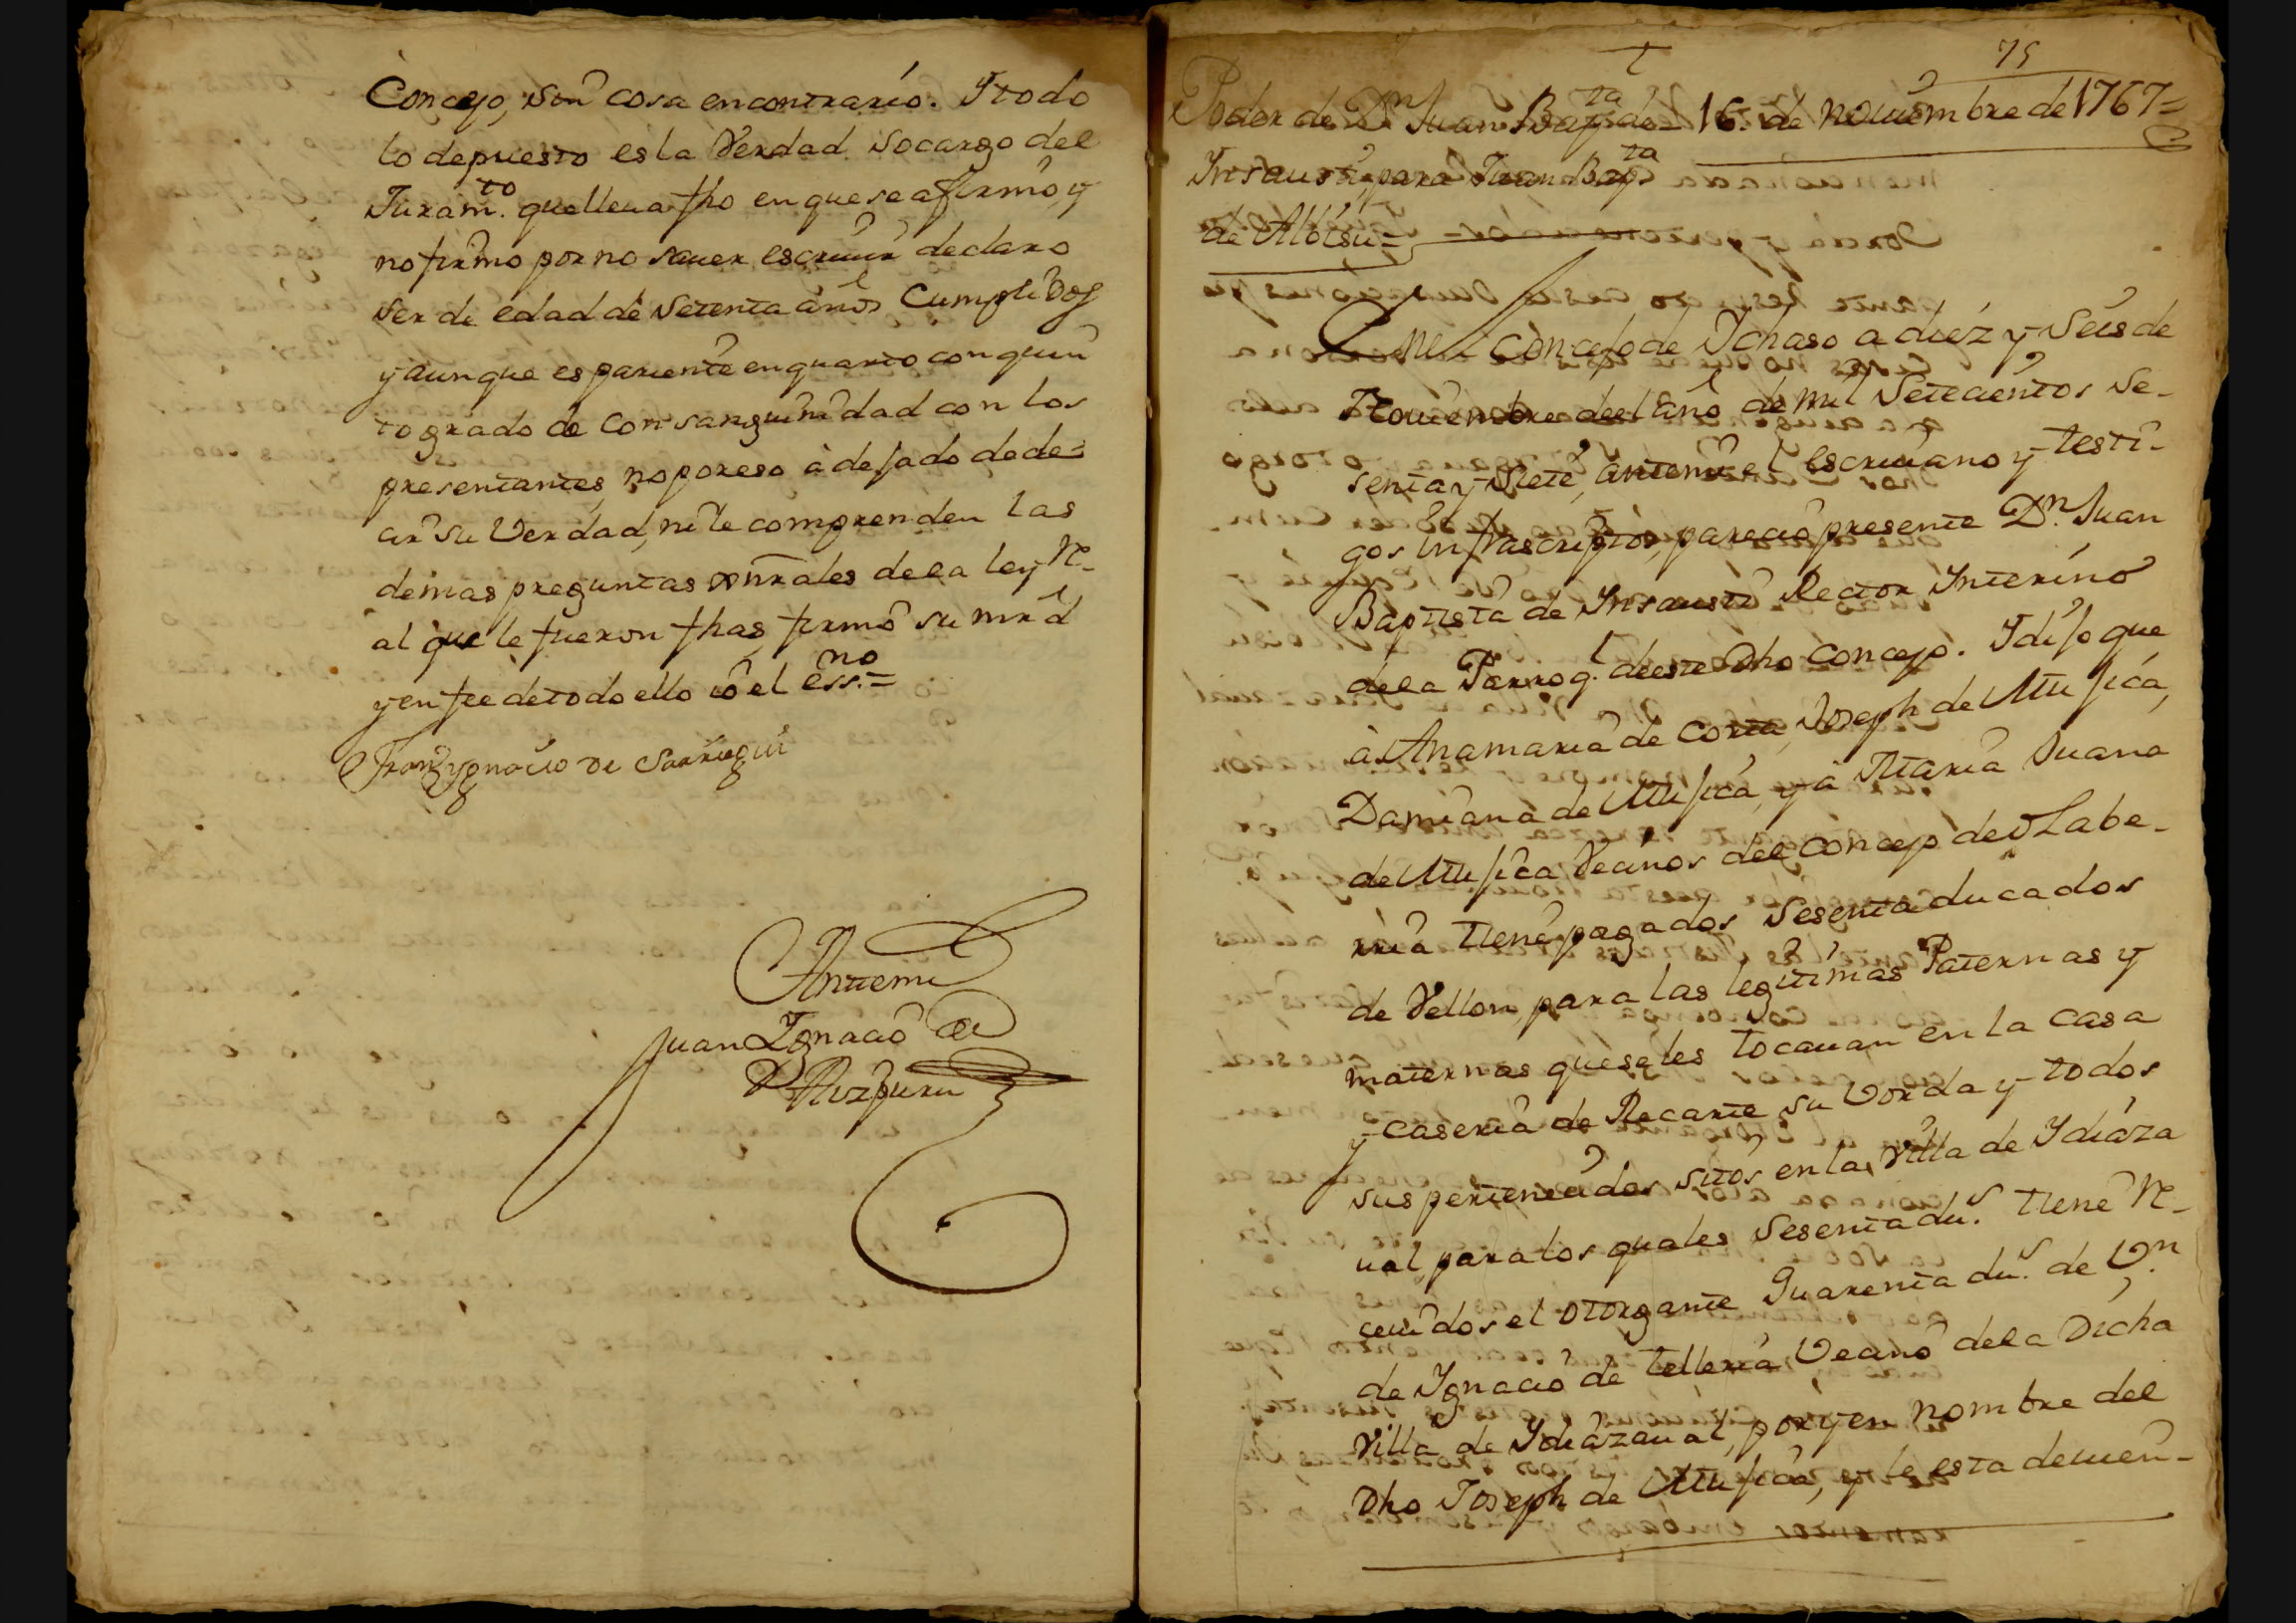 Concejo, sin cosa en contrario. Y todo
lo depuesto es la Verdad socargo del
Juram.to que lleua fho en que se afirmó, y
no firmo por no sauer escriuir declaro
ser de edad de Setenta años Cumplidos
y aunque es pariente en quarto con quin
to grado de Consanguinidad con los
presentantes, no por eso à dejado de de=
cir su Verdad, ni le comprenden las
demas preguntas xnrales de la ley R-
al que le fueron fhas, firmó su mrd
y en fee de todo ello yo el ess.no=
Fran.co Ygnacio de Sarriegui
Antemi
Juan Ygnacio de
Aizpuru
75
Poder de Dn Juan Bap.ta de
Insausti, para Juan Bap.ta
de Aloisu=
16. de Nouiembre de 1767=
En el Concejo de Ychaso a diez y Seis de
Nouiembre del año de mil Setecientos se-
senta y Siete, ante mi el escriuano y testi-
gos infrascriptos, parecio presente Dn. Juan
Baptista de Insausti Rector Interino
de la Parroq.l de este Dho Concejo. Y dijo que
à Anamaria de Corta, Joseph de Mujica,
Damiana de Mujica, y à Maria Juana
de Mujica Vecinos del Concejo de Zabe-
rria tiene pagados Sesenta ducados
de Vellon, para las legitimas Paternas y
maternas que se les tocauan en la casa
y caseria de Recarte su Vorda y todos
sus pertenecidos sitos en la Villa de Ydiaza
ual, para los quales Sesenta du.s tiene R-
ceuidos el otorgante Quarenta du.s de V.n
de Ygnacio de Telleria Vecino de la Dicha
Villa de Ydiazaual, por y en nombre del
Dho Joseph de Mujica, y le esta deuien-